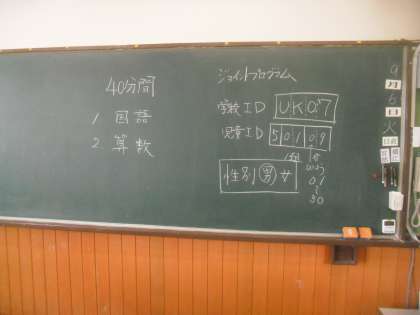 40分間
1 国語
2 算数
ジョイントプログラム
学校ID UK07
児童ID 50109
性別 男 女
01
30
9
月
5
日
火